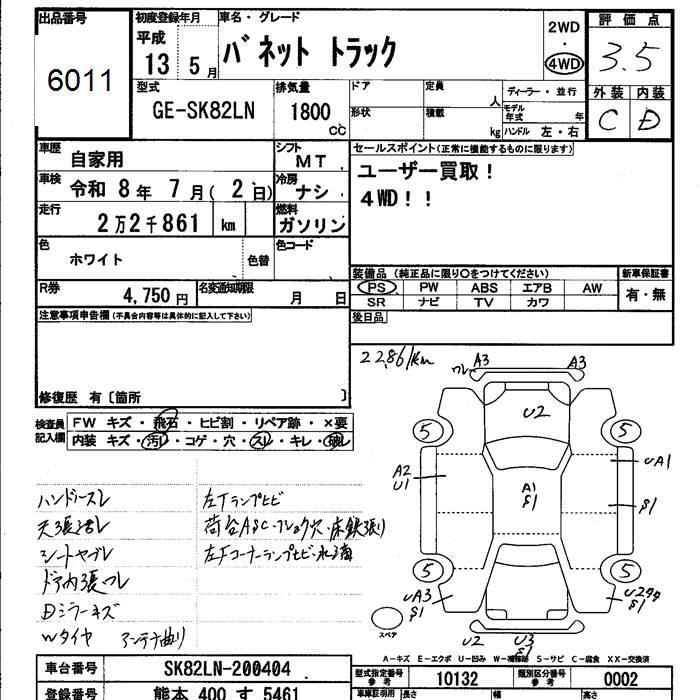 出品番号
6011
初度登録年月
平成
13 年 5 月
車名・グレード
バネット トラック
2WD
・
4WD
評価点
3.5
外装 内装
C D
型式
GE-SK82LN
排気量
1800
cc
ドア
形状
定員
人
積載
kg
ディーラー・並行
モデル
年式 年
ハンドル 左・右
車歴
自家用
シフト
MT
車検
令和 8年 7月( 2 日)
冷房
ナシ
走行
2万2千861 km
燃料
ガソリン
色
ホワイト
色替
色コード
R券
4,750 円
名変通知期限
月 日
セールスポイント(正常に機能するものに限ります)
ユーザー買取!
4WD!!
装備品 (純正品に限り○をつけてください)
PS PW ABS エアB AW
SR ナビ TV カワ
新車保証書
有・無
後日品
注意事項申告欄(不具合内容等は具体的に記入して下さい)
修復歴 有〔箇所 〕
検査員
記入欄
FW キズ・飛石・ヒビ割・リペア跡・×要
内装 キズ・汚レ・コゲ・穴・スレ・キレ・破レ
ハンドースレ
天張汚レ
シートヤブレ
ドア内張ワレ
Dミラーキズ
Wタイヤ アンテナ曲り
左Tランプヒビ
荷台ASC・ワレ・穴・床鉄張り
左Fコーナーランプヒビ・水滴
22861km
ワレ A3 A3
U2
5 5
A2
U1
A1
S1
UA1
S1
5 5
UA3
S1
S1
スペア
U2 U3
S1
A-キズ E-エクボ U-凹み W-補修跡 S-サビ C-腐食 XX-交換済
車台番号
SK82LN-200404
型式指定番号
参考
10132
類別区分番号
参考
0002
登録番号
熊本 400 す 5461
車庫証明用
長さ 幅 高さ